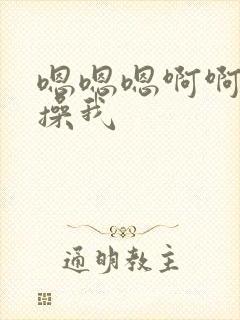 嗯嗯嗯啊啊
操我
通明教主